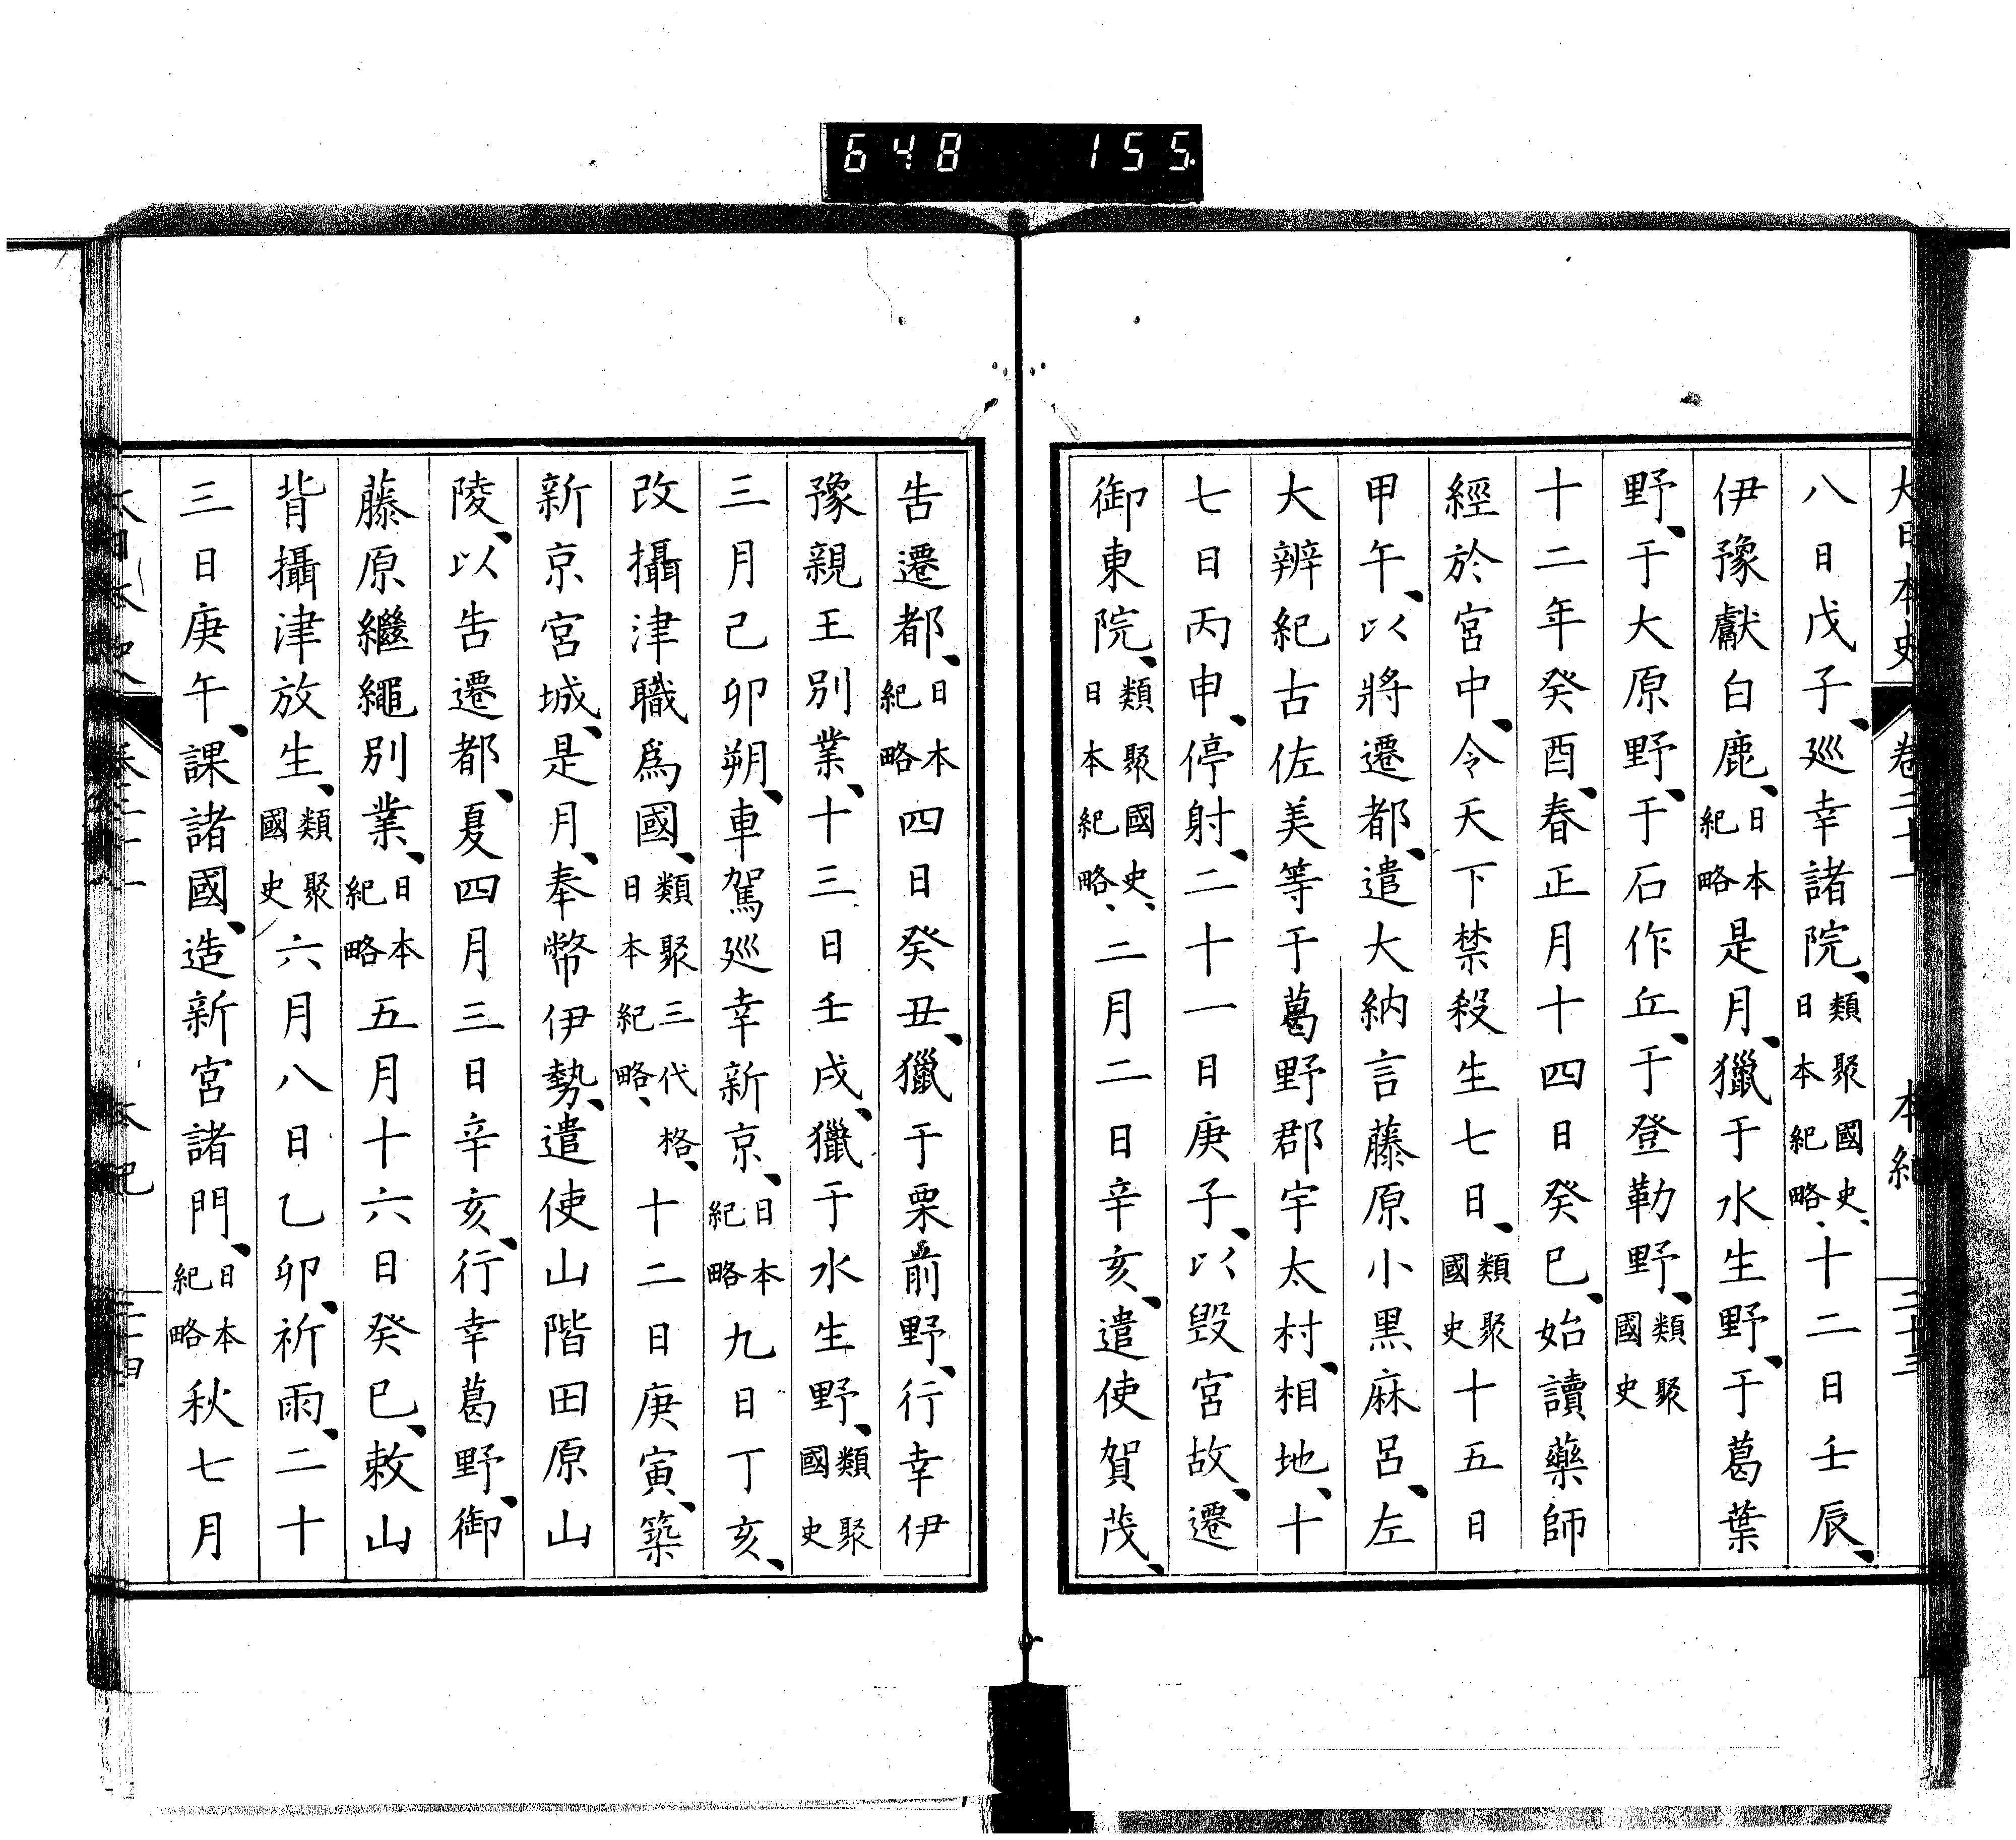 648 155
大日本史 卷二十一 本紀
八日戊子、巡幸諸院、類聚國史、日本紀略、十二日壬辰、
伊豫獻白鹿、日本紀略是月、獵于水生野、于葛葉
野、于大原野、于石作丘、于登勒野、類聚國史
十二年癸酉、春正月十四日癸巳、始讀藥師
經於宮中、令天下禁殺生七日、類聚國史十五日
甲午、以將遷都、遣大納言藤原小黑麻呂、左
大辨紀古佐美等于葛野郡宇太村、相地、十
七日丙申、停射、二十一日庚子、以毀宮故、遷
御東院、類聚國史、日本紀略、二月二日辛亥、遣使賀茂、
告遷都、日本紀略四日癸丑、獵于栗前野、行幸伊
豫親王別業、十三日壬戌、獵于水生野、類聚國史
三月己卯朔、車駕巡幸新京、日本紀略九日丁亥、
改攝津職爲國、類聚三代格、日本紀略、十二日庚寅、築
新京宮城、是月、奉幣伊勢、遣使山階田原山
陵、以告遷都、夏四月三日辛亥、行幸葛野、御
藤原繼繩別業、日本紀略五月十六日癸巳、敕山
背攝津放生、類聚國史六月八日乙卯、祈雨、二十
三日庚午、課諸國、造新宮諸門、日本紀略秋七月